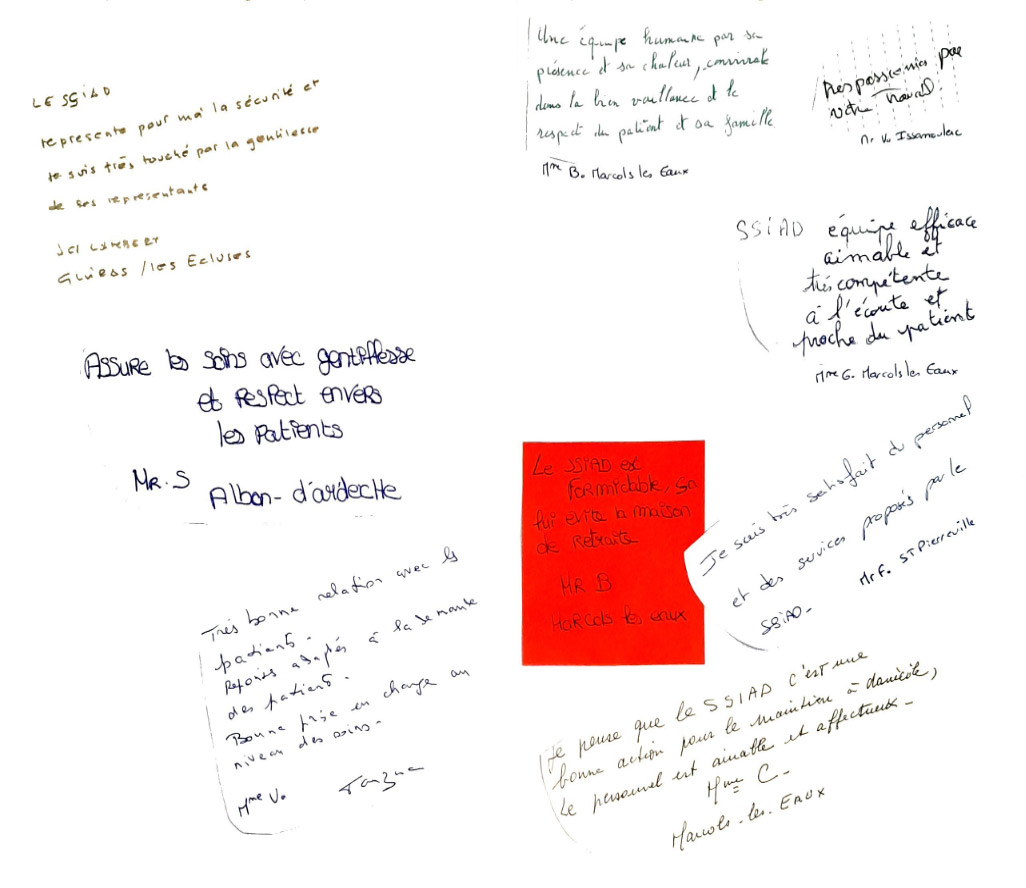 LE SSIAD
represente pour moi la sécurité et
je suis très touché par la gentilesse
de ses representants
GLUIRAS / les Ecluses
Assure les soins avec gentillesse
et respect envers
les patients
Mr. S
Albon-d'ardeche
Très bonne relation avec les
patients.
adaptés à la demande
des patients.
Bonne prise en charge au
niveau des soins.
Mme V.
Une équipe humaine par sa
présence et sa chaleur,
dans la bien vaillance et le
respect du patient et sa famille
Mme B. Marcols les Eaux
par
votre Travail.
Mr V. Issamoulenc
SSIAD équipe efficace
aimable et
très compétente
à l'écoute et
proche du patient
Mme G. Marcols les Eaux
Le SSIAD est
formidable, sa
lui evite la maison
de retraite
MR B
Marcols les eaux
Je suis très satisfait du personnel
et des services proposés par le
SSIAD.
Mr F. ST Pierreville
Je pense que le SSIAD c'est une
bonne action pour le maintien à domicile,
Le personnel est aimable et affectueux.
Mme C.
Marcols-les-Eaux